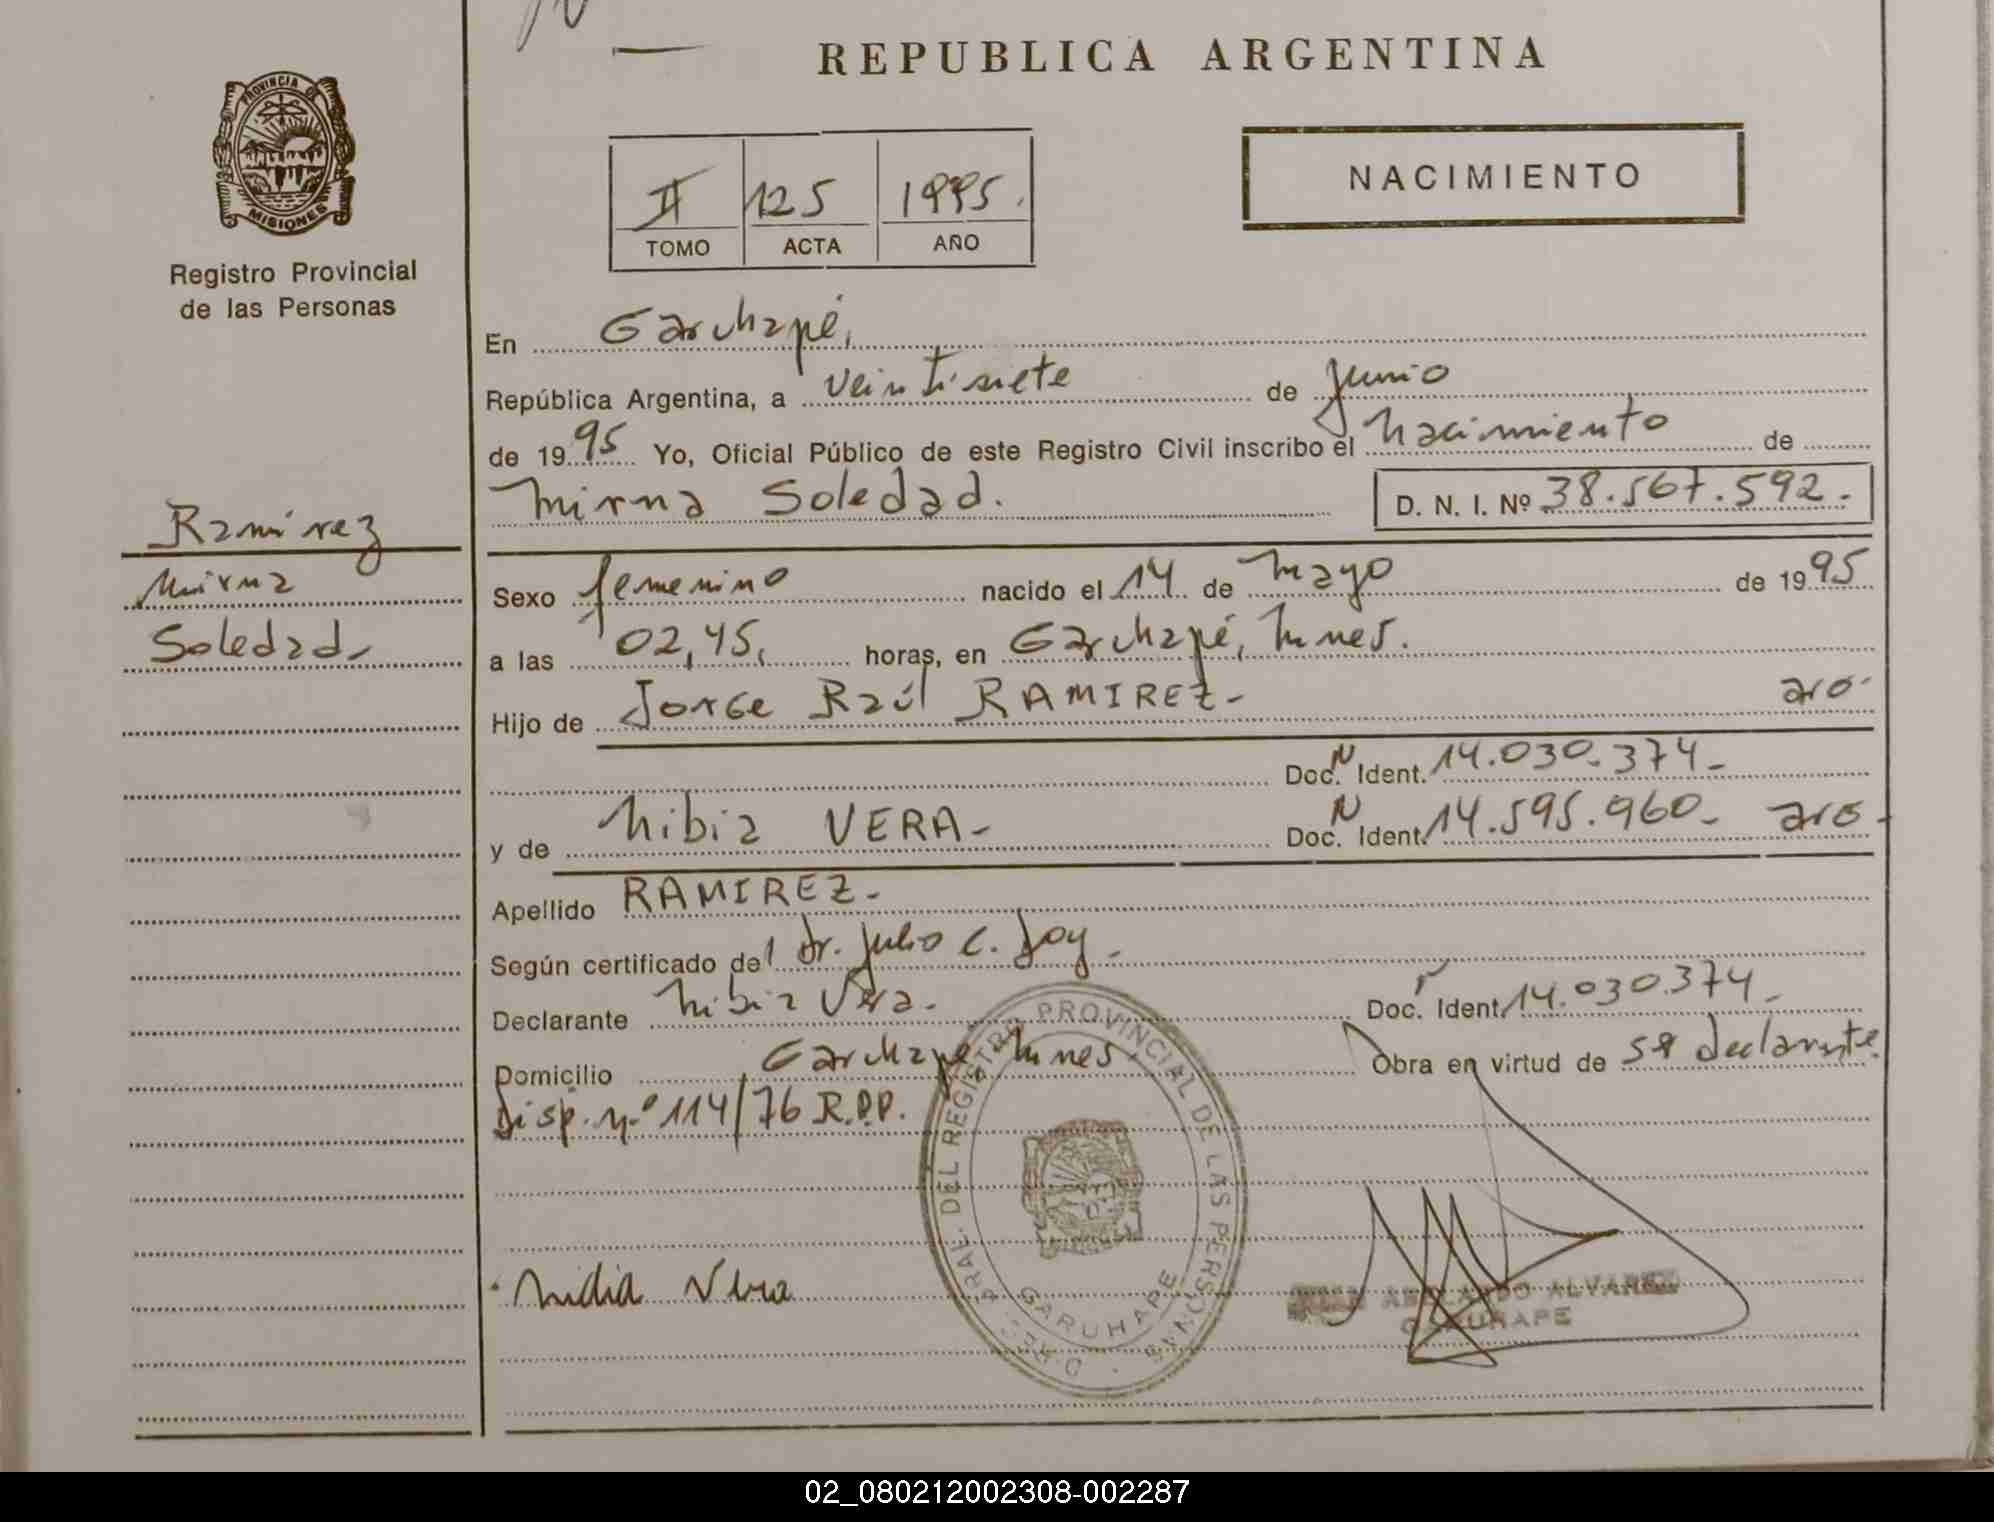 REPUBLICA ARGENTINA
PROVINCIA DE
MISIONES
Registro Provincial
de las Personas
II 125 1995.
TOMO ACTA AÑO
NACIMIENTO
En Garuhapé,
República Argentina, a veintisiete de junio
de 1995 Yo, Oficial Público de este Registro Civil inscribo el nacimiento de
Mirna Soledad. D. N. I. Nº 38.567.592.
Ramirez
Mirna
Soledad
Sexo femenino nacido el 14 de mayo de 1995
a las 02,45, horas, en Garuhapé, Mnes.
Hijo de Jorge Raúl RAMIREZ- aro-
Doc. N Ident. 14.030.374-
y de Nibia VERA- Doc. N Ident. 14.595.960- aro-
Apellido RAMIREZ-
Según certificado del Dr. Julio C.
Declarante Nibia Vera- Doc. Ident. 14.030.374-
Domicilio Garuhapé Mnes, Obra en virtud de ser declarante
Disp. nº 114/76 R.P.P.
GRAL. DEL REGISTRO PROVINCIAL DE LAS PERSONAS
GARUHAPE
Nidia Vera
ALVAREZ
GARUHAPE
02_080212002308-002287